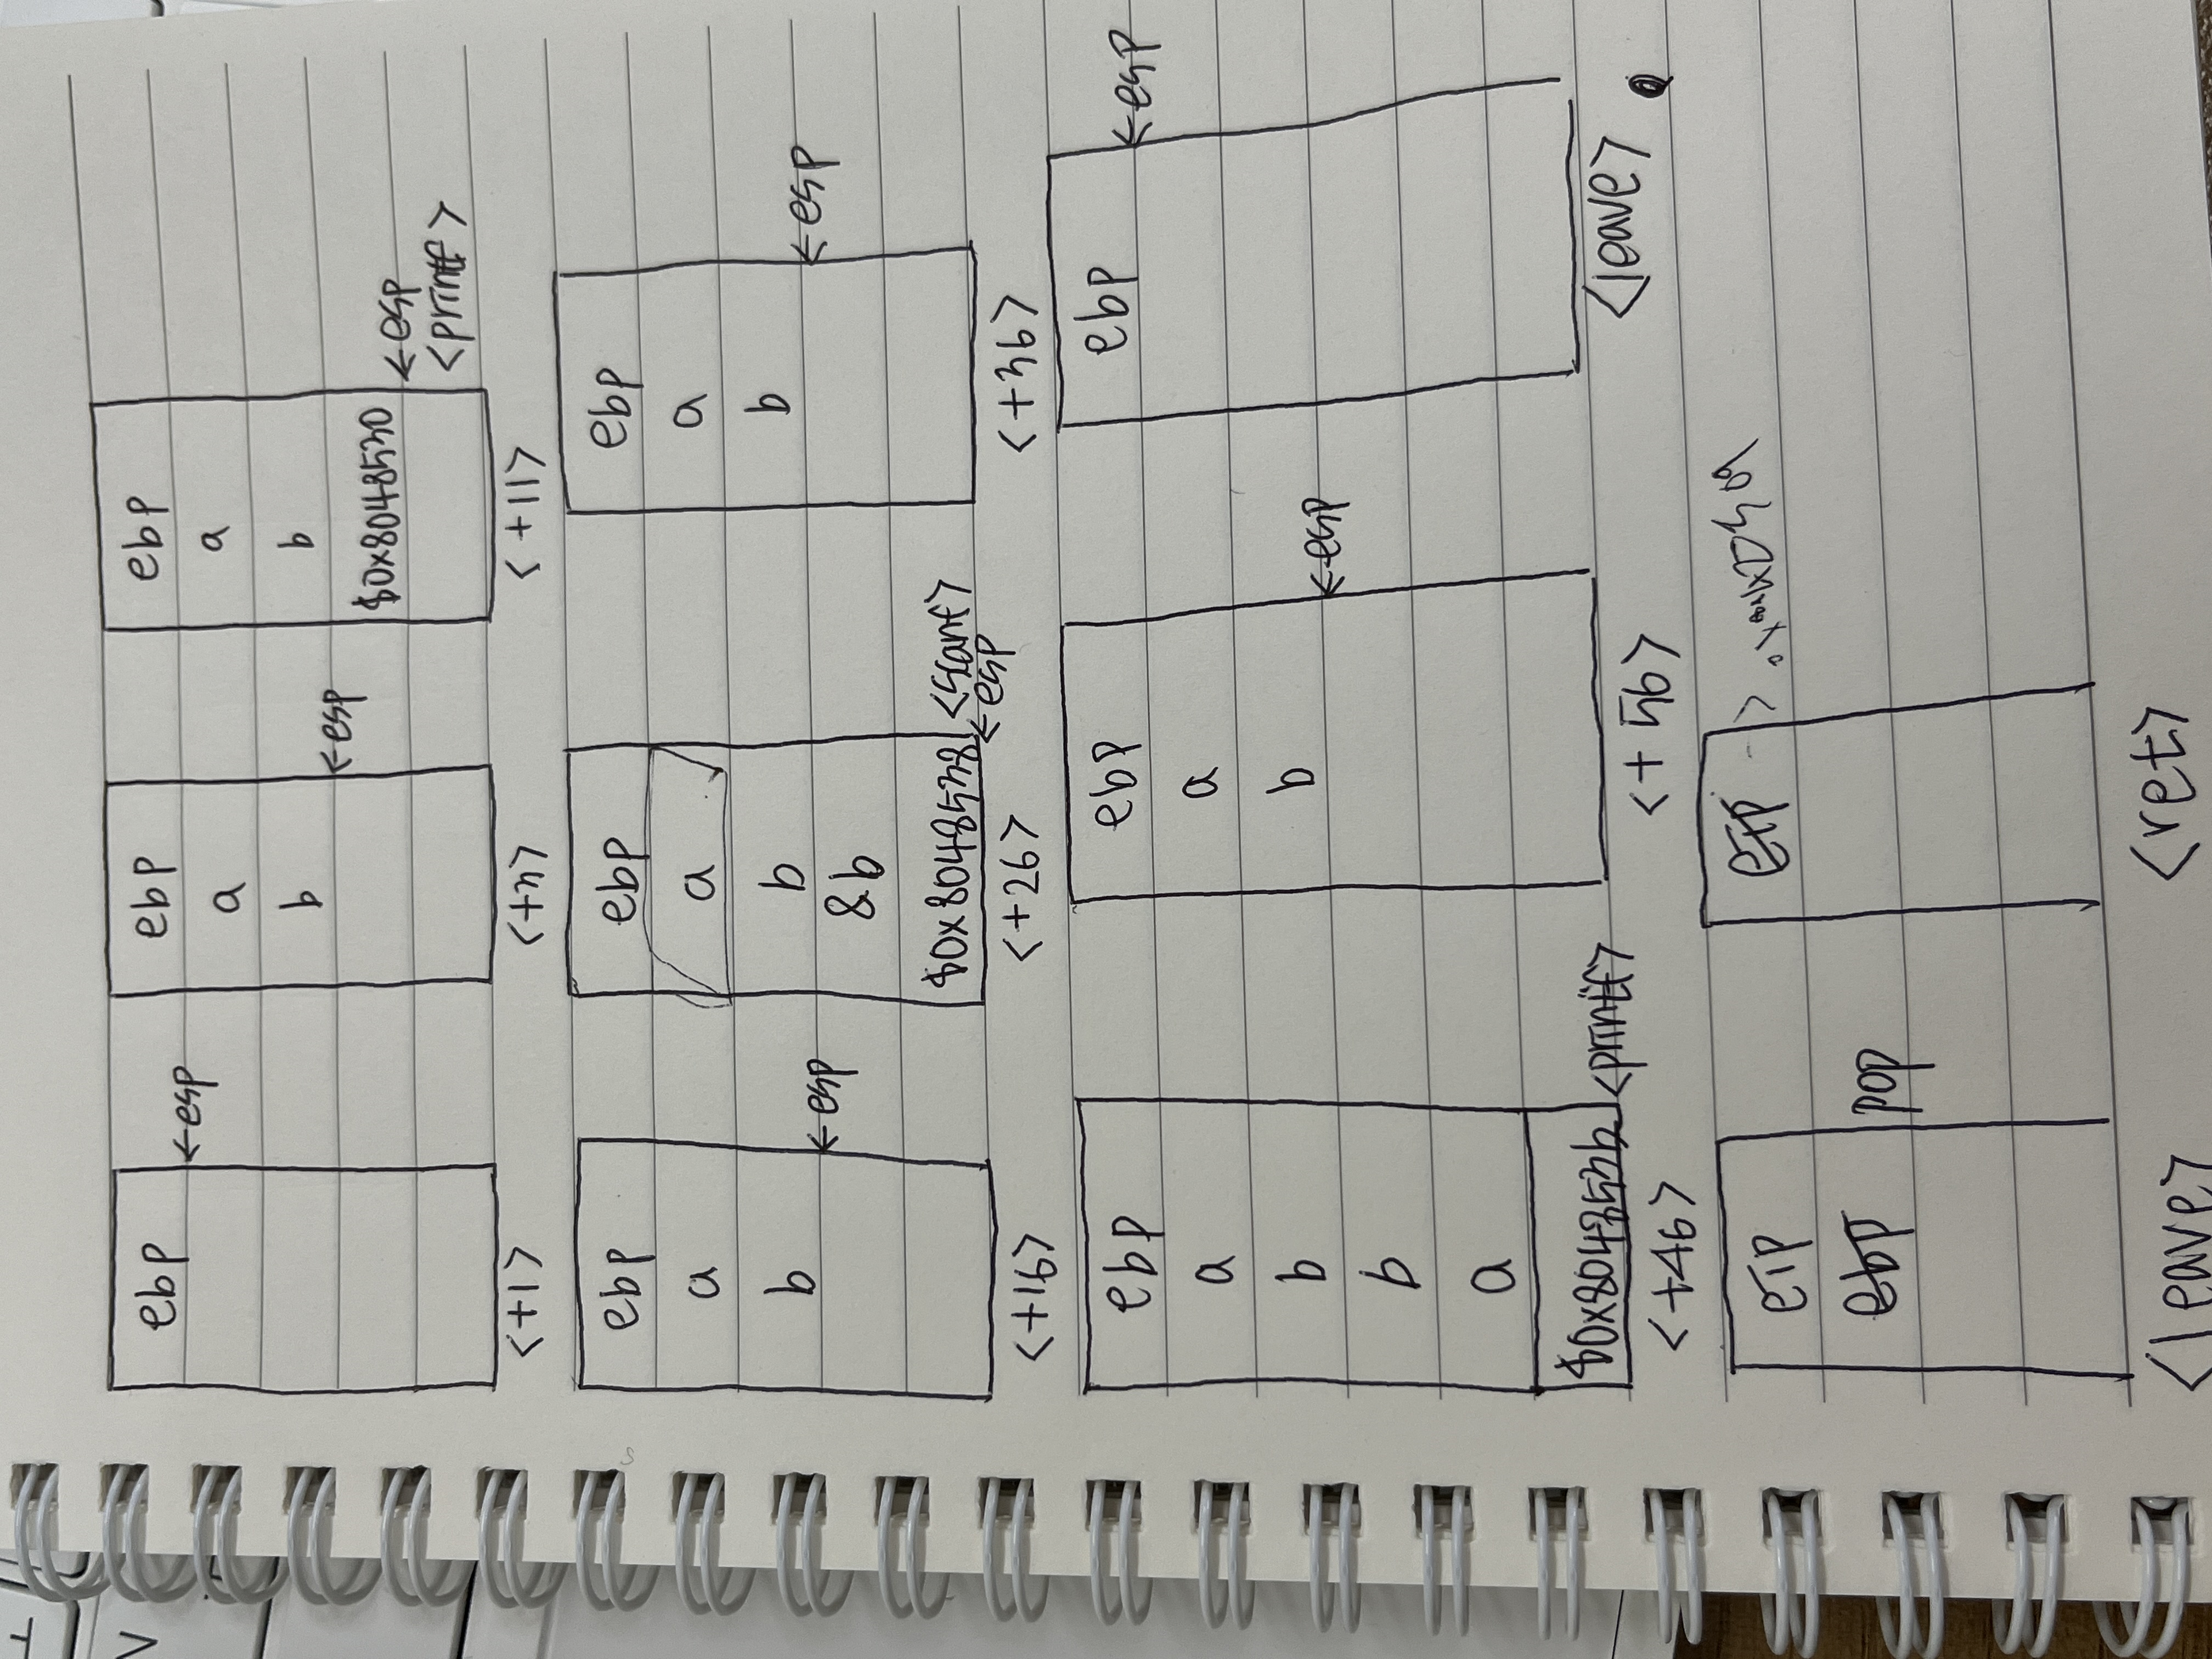 ebp
←esp
<+1>
ebp
a
b
←esp
<+4>
ebp
a
b
$0x8048530
←esp
<printf>
<+11>
ebp
a
b
←esp
<+16>
ebp
a
b
&b
$0x8048538
<scanf>
←esp
<+26>
ebp
a
b
←esp
<+36>
ebp
a
b
b
a
$0x804853b
<printf>
<+46>
ebp
a
b
←esp
<+56>
ebp
←esp
<leave>
eip
ebp
pop
<leave>
eip
<ret>